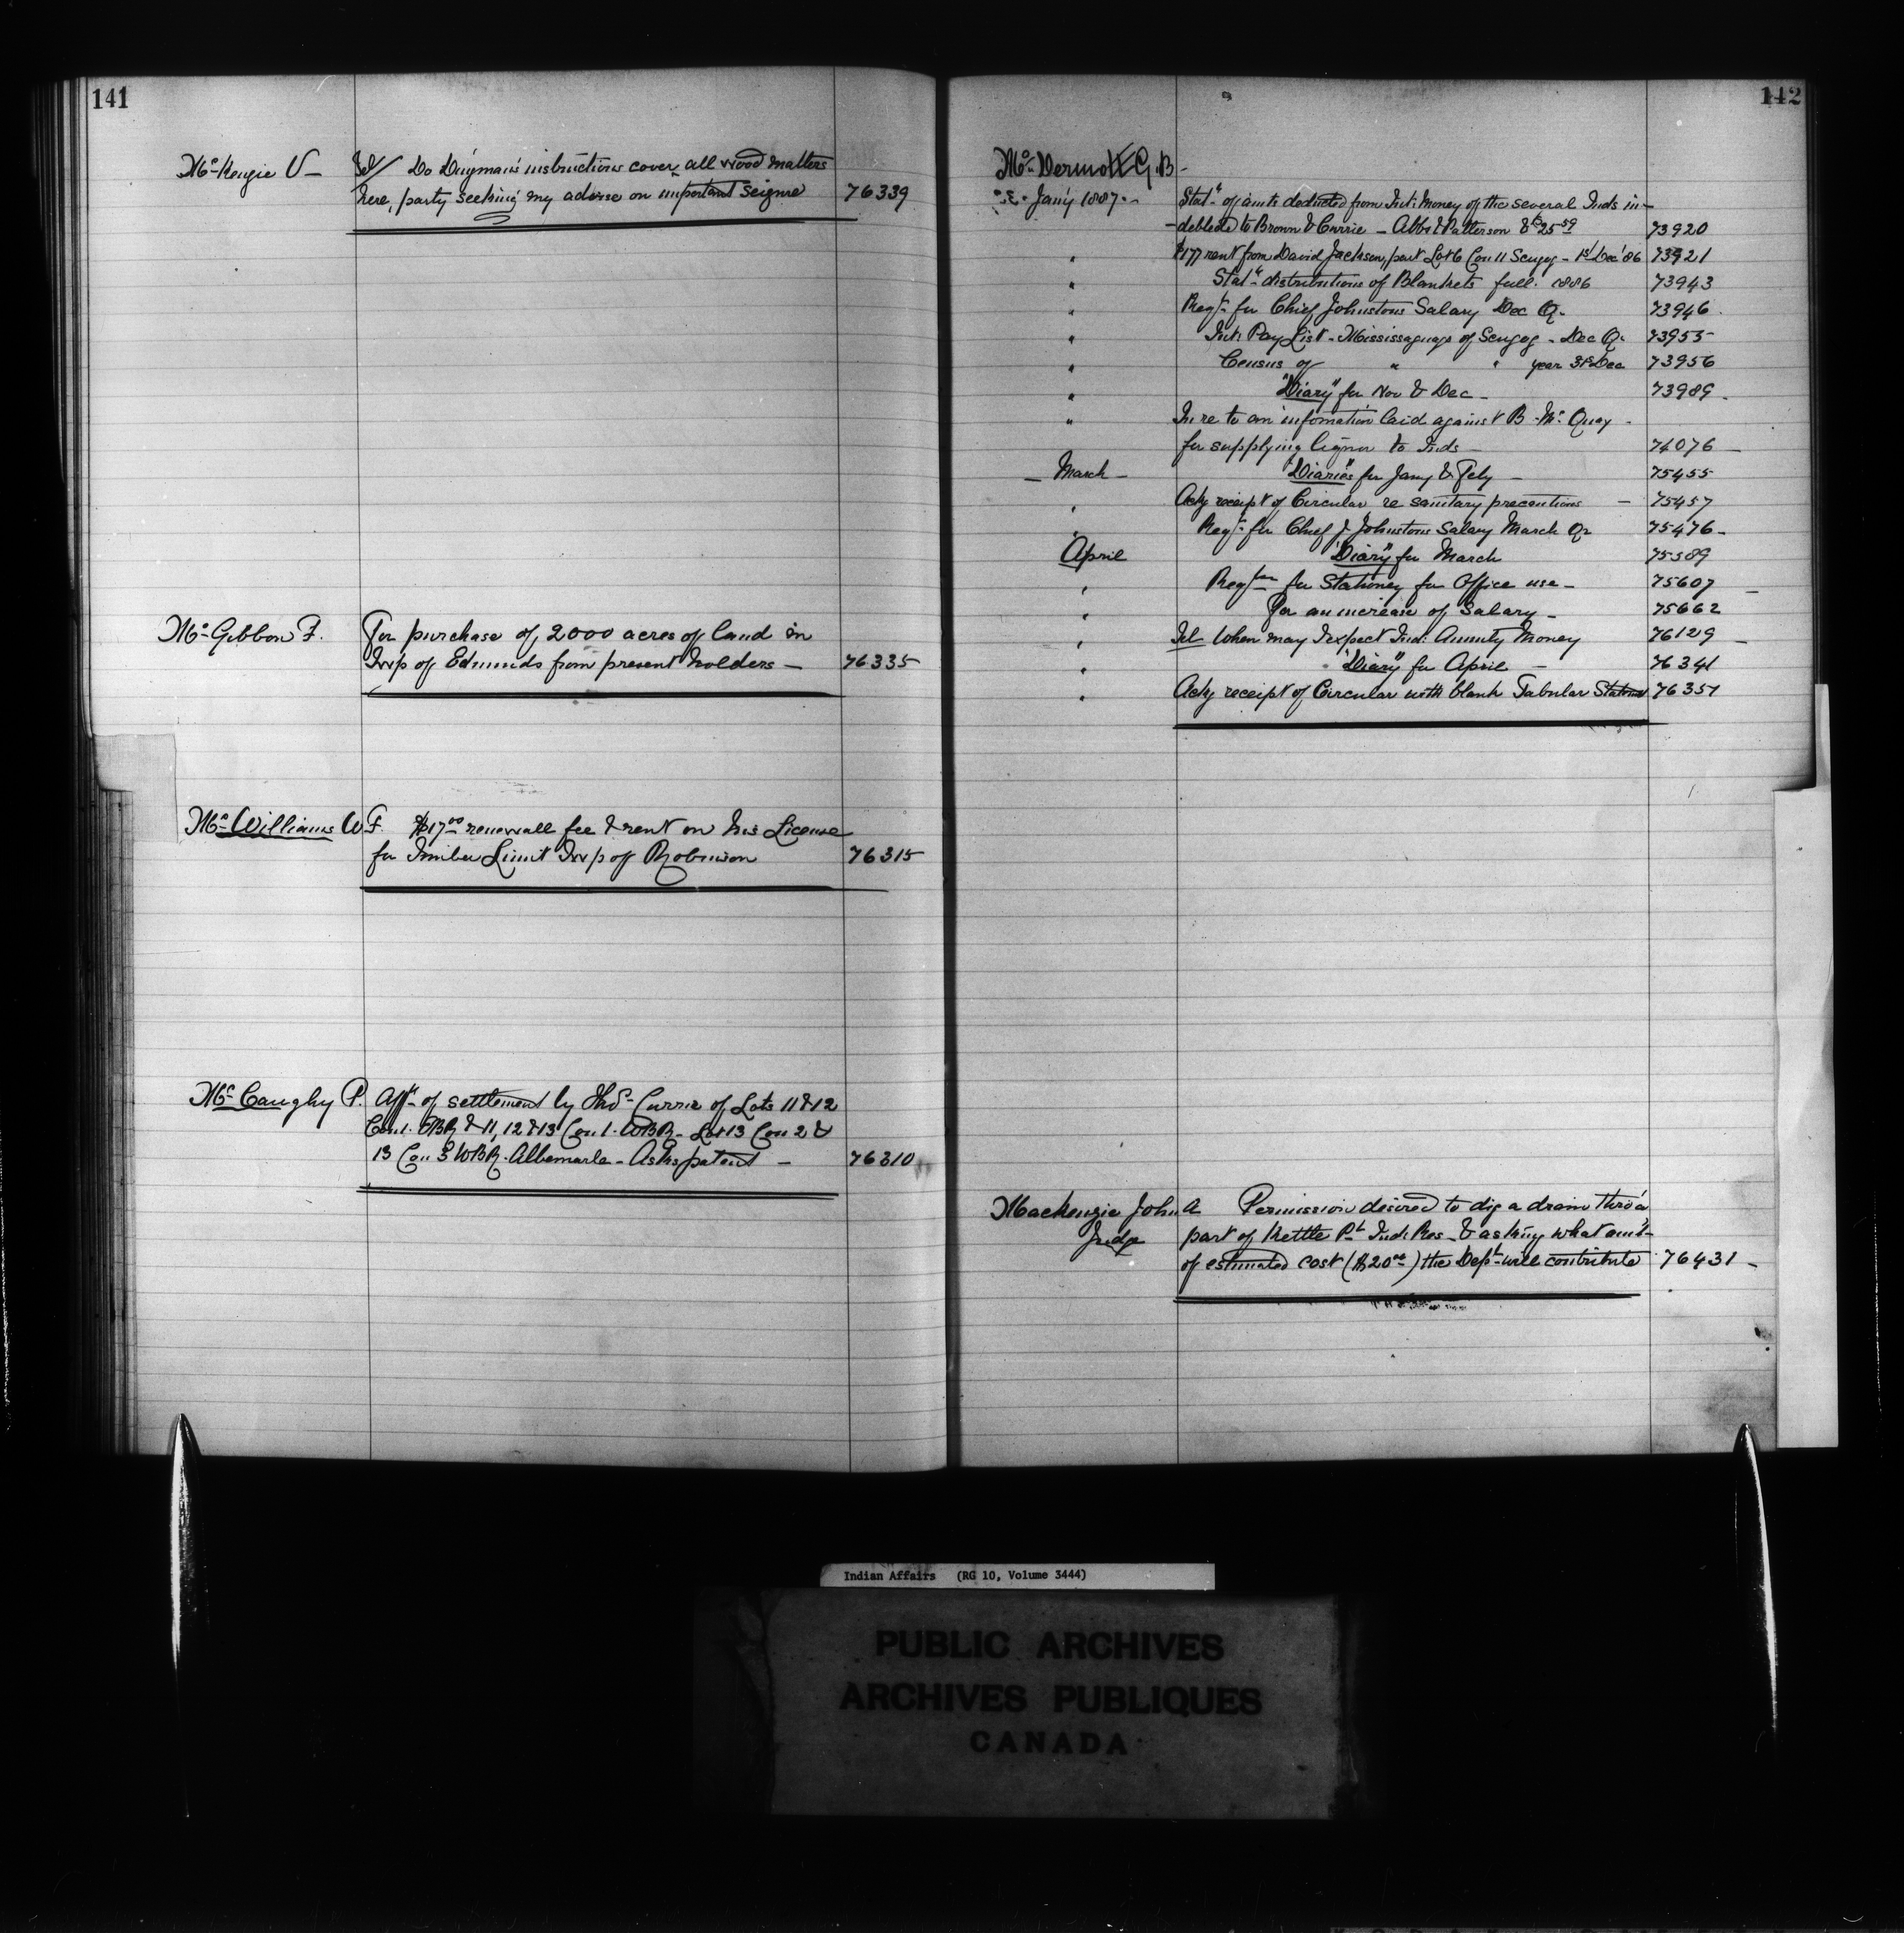 141
McKenzie V — Tel/ Do Dingman's instructions cover all wood matters
here, party seeking my advise on important seizure 76339
McGibbon F. For purchase of 2000 acres of land in
Twp of Edmunds from present holders — 76335
McWilliams W.F. $17.00 renewall fee & rent on his License
for Timber Limit Twp of Robinson 76315
McCaughy P. Afft of settlement by Thos Currie of Lots 11 & 12
Con 1. EBR & 11, 12 & 13 Con 1. WBR - Lot 13 Con 2 &
13 Con 3 WBR. Albemarle - Asks patent — 76310
142
McDermott G.B -
Jan'y 1887. Statt of amts deducted from Int: Money of the several Inds in-
-debted to Brown & Currie - Abbe & Patterson $25.59 73920
" $177 rent from David Jackson, part Lot 6 Con 11 Scugog - 1st Dec '86 73921
" Statt distributions of Blankets fall 1886 73943
" Reqn for Chief Johnstons Salary Dec Qr 73946
" Int: Pay List - Mississaguas of Scugog - Dec Qr 73955
" Census of " " year 31st Dec 73956
" "Diary" for Nov & Dec - 73989
" In re to an information laid against B. McQuay -
for supplying liquor to Inds - 74076
March - "Diaries" for Jany & Feby - 75455
" Ackg receipt of Circular re sanitary precautions - 75457
" Reqn for Chief J Johnstons Salary March Qr 75476
April "Diary" for March 75589
" Reqn for Stationery for Office use - 75607
" For an increase of Salary - 75662
" Tel When may I expect Ind: Annuity Money 76129
" "Diary" for April - 76341
" Ackg receipt of Circular with blank Tabular Statemt 76351
Mackenzie John A Permission desired to dig a drain thro' a
Judge part of Kettle Pt Ind: Res - & asking what amt
of estimated cost ($20.00) the Dept will contribute 76431
Indian Affairs (RG 10, Volume 3444)
PUBLIC ARCHIVES
ARCHIVES PUBLIQUES
CANADA